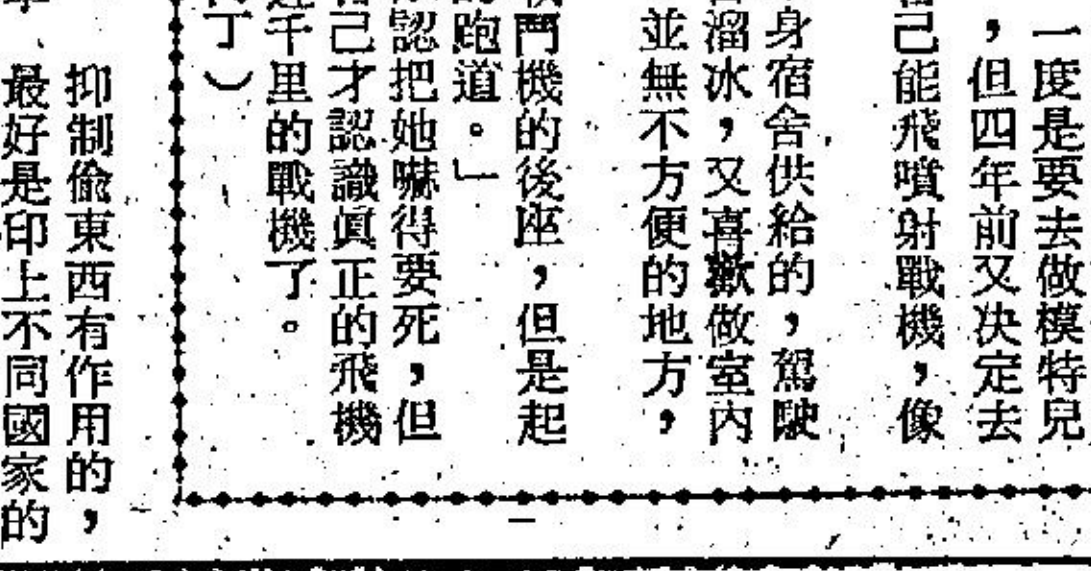 一度是要去做模特兒
，但四年前又決定去
己能飛噴射戰機，像
身宿舍供給的，駕駛
溜冰，又喜歡做室內
並無不方便的地方，
鬥機的後座，但是起
跑道。」
認把她嚇得要死，但
己才認識眞正的飛機
千里的戰機了。
丁）
抑制偷東西有作用的，
最好是印上不同國家的